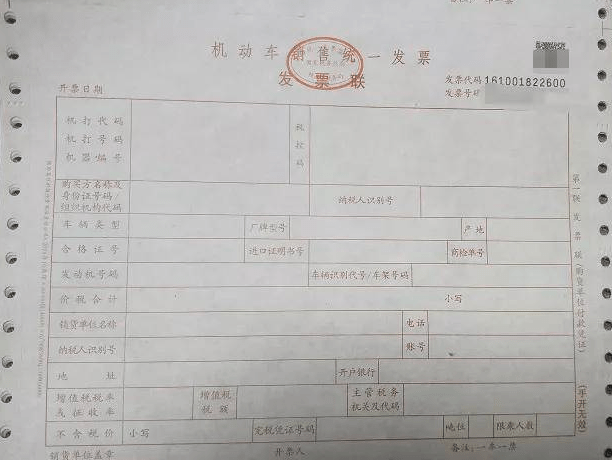 机动车销售统一发票
发票联
发票代码 161001822600
发票号码
开票日期
机打代码
机打号码
机器编号
税控码
购买方名称及
身份证号码/
组织机构代码
纳税人识别号
车辆类型
厂牌型号
产地
合格证号
进口证明书号
商检单号
发动机号码
车辆识别代号/车架号码
价税合计
小写
销货单位名称
电话
纳税人识别号
账号
地址
开户银行
增值税税率
或征收率
增值税
税额
主管税务
机关及代码
不含税价
小写
完税凭证号码
吨位
限乘人数
销货单位盖章
开票人
备注:一车一票
第一联 发票联(购货单位付款凭证)
(手开无效)